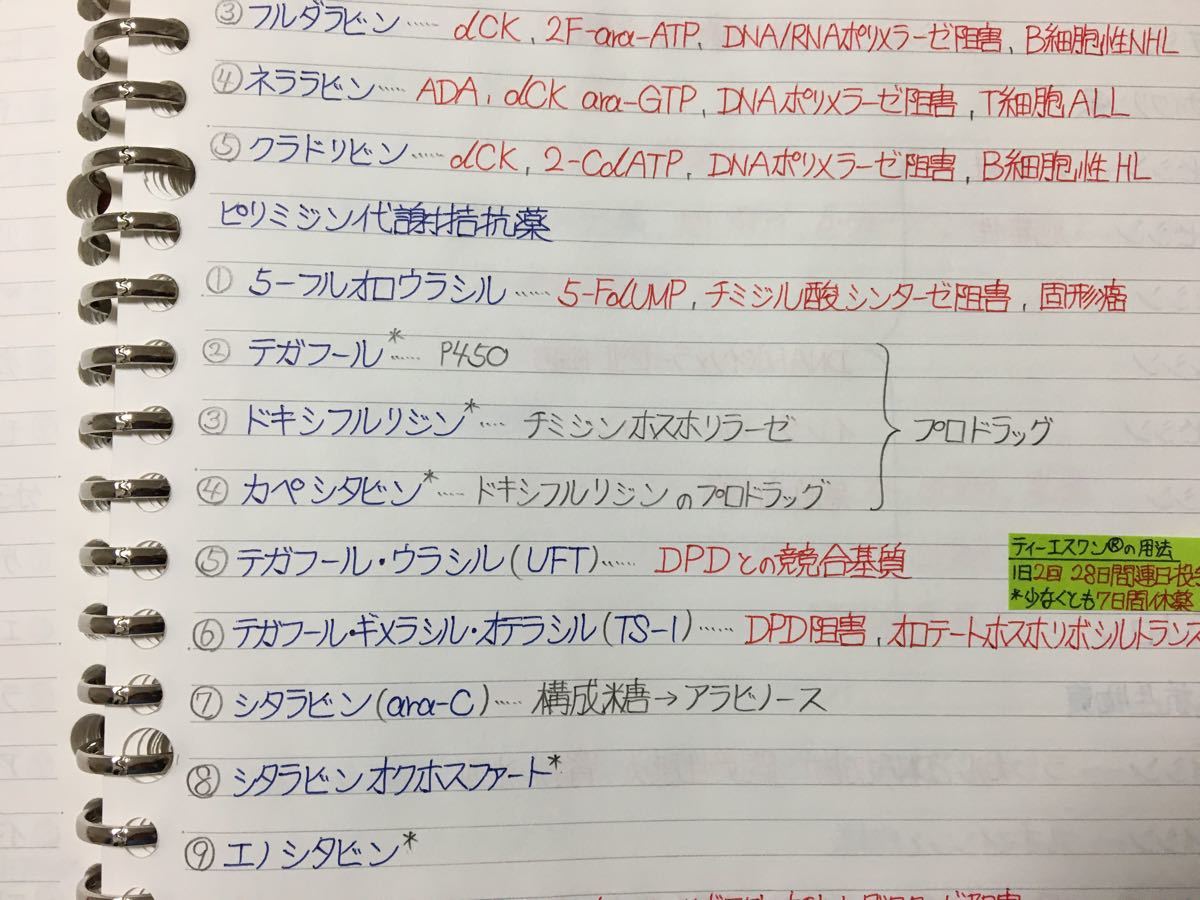 ③フルダラビン…… dCK, 2F-ara-ATP, DNA/RNAポリメラーゼ阻害, B細胞性NHL
④ネララビン…… ADA, dCK ara-GTP, DNAポリメラーゼ阻害, T細胞ALL
⑤クラドリビン…… dCK, 2-CdATP, DNAポリメラーゼ阻害, B細胞性HL
ピリミジン代謝拮抗薬
① 5-フルオロウラシル…… 5-FdUMP, チミジル酸シンターゼ阻害, 固形癌
② テガフール*…… P450
③ ドキシフルリジン*…… チミジンホスホリラーゼ
プロドラッグ
④ カペシタビン*…… ドキシフルリジンのプロドラッグ
⑤ テガフール・ウラシル(UFT)…… DPDとの競合基質
ティーエスワン®の用法
1日2回 28日間連日投
*少なくとも7日間休薬
⑥ テガフール・ギメラシル・オテラシル(TS-1)…… DPD阻害, オロテートホスホリボシルトランス
⑦ シタラビン(ara-C)…… 構成糖→アラビノース
⑧ シタラビンオクホスファート*
⑨ エノシタビン*